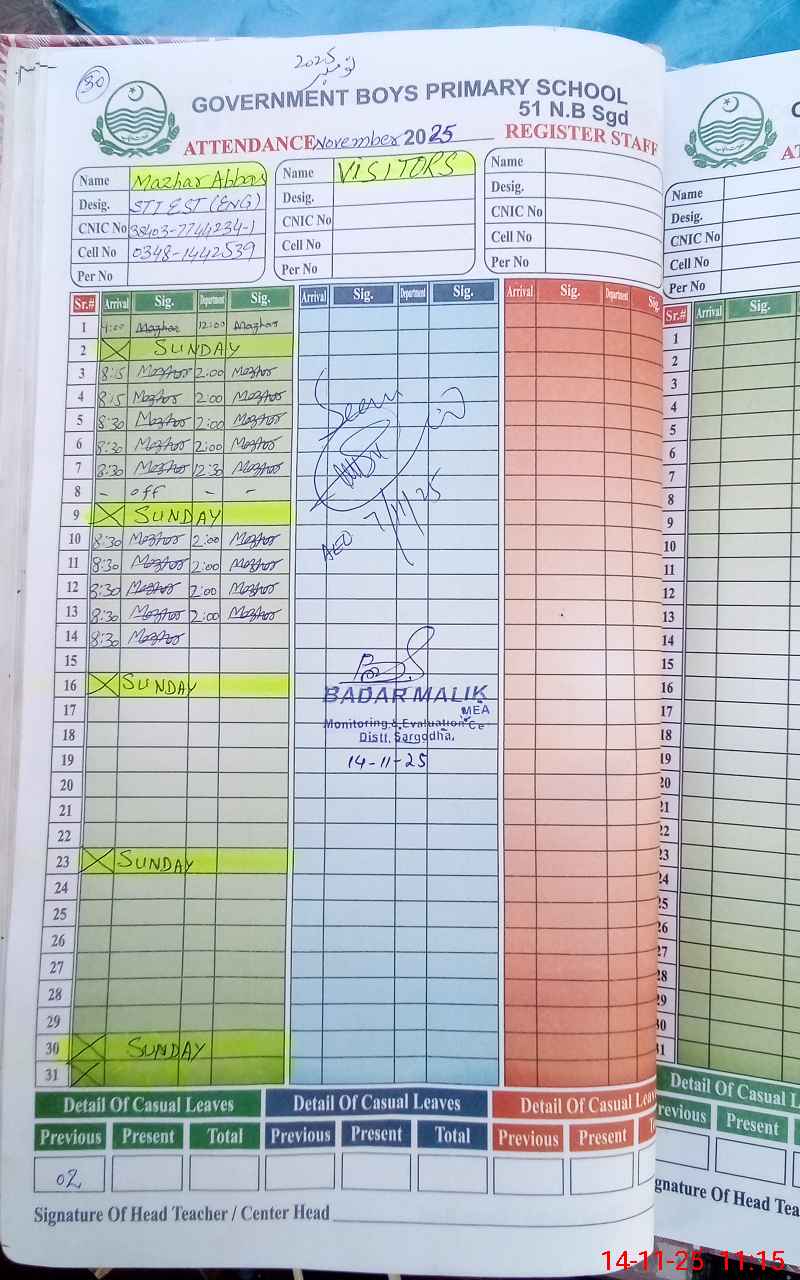 30
2025 نومبر
GOVERNMENT BOYS PRIMARY SCHOOL
51 N.B Sgd
ATTENDANCE November 2025 REGISTER STAFF
Name Mazhar Abbas Name VISITORS Name
Desig. STI EST (ENG) Desig. Desig.
CNIC No 38403-7744234-1 CNIC No CNIC No
Cell No 0348-1442539 Cell No Cell No
Per No Per No Per No
Sr.# Arrival Sig. Department Sig. Arrival Sig. Department Sig. Arrival Sig. Department Sig.
1 Mazhar 12:00 Mazhar
2 SUNDAY
3 8:15 Mazhar 2:00 Mazhar
4 8:15 Mazhar 2:00 Mazhar
5 8:30 Mazhar 2:00 Mazhar
6 8:30 Mazhar 2:00 Mazhar
7 8:30 Mazhar 12:30 Mazhar
8 - off - -
9 SUNDAY
10 8:30 Mazhar 2:00 Mazhar
11 8:30 Mazhar 2:00 Mazhar
12 8:30 Mazhar 2:00 Mazhar
13 8:30 Mazhar 2:00 Mazhar
14 8:30 Mazhar
15
16 SUNDAY
17
18
19
20
21
22
23 SUNDAY
24
25
26
27
28
29
30 SUNDAY
31
Seen
AEO 7/11/25
BADAR MALIK
MEA
Monitoring & Evaluation Ce
Distt. Sargodha.
14-11-25
Detail Of Casual Leaves Detail Of Casual Leaves Detail Of Casual Leaves
Previous Present Total Previous Present Total Previous Present
02
Signature Of Head Teacher / Center Head
Name
Desig.
CNIC No
Cell No
Per No
Sr.# Arrival Sig.
1
2
3
4
5
6
7
8
9
10
11
12
13
14
15
16
17
18
19
20
21
22
23
24
25
26
27
28
29
30
31
Detail Of Casual
Previous Present
Signature Of Head Tea
14-11-25 11:15